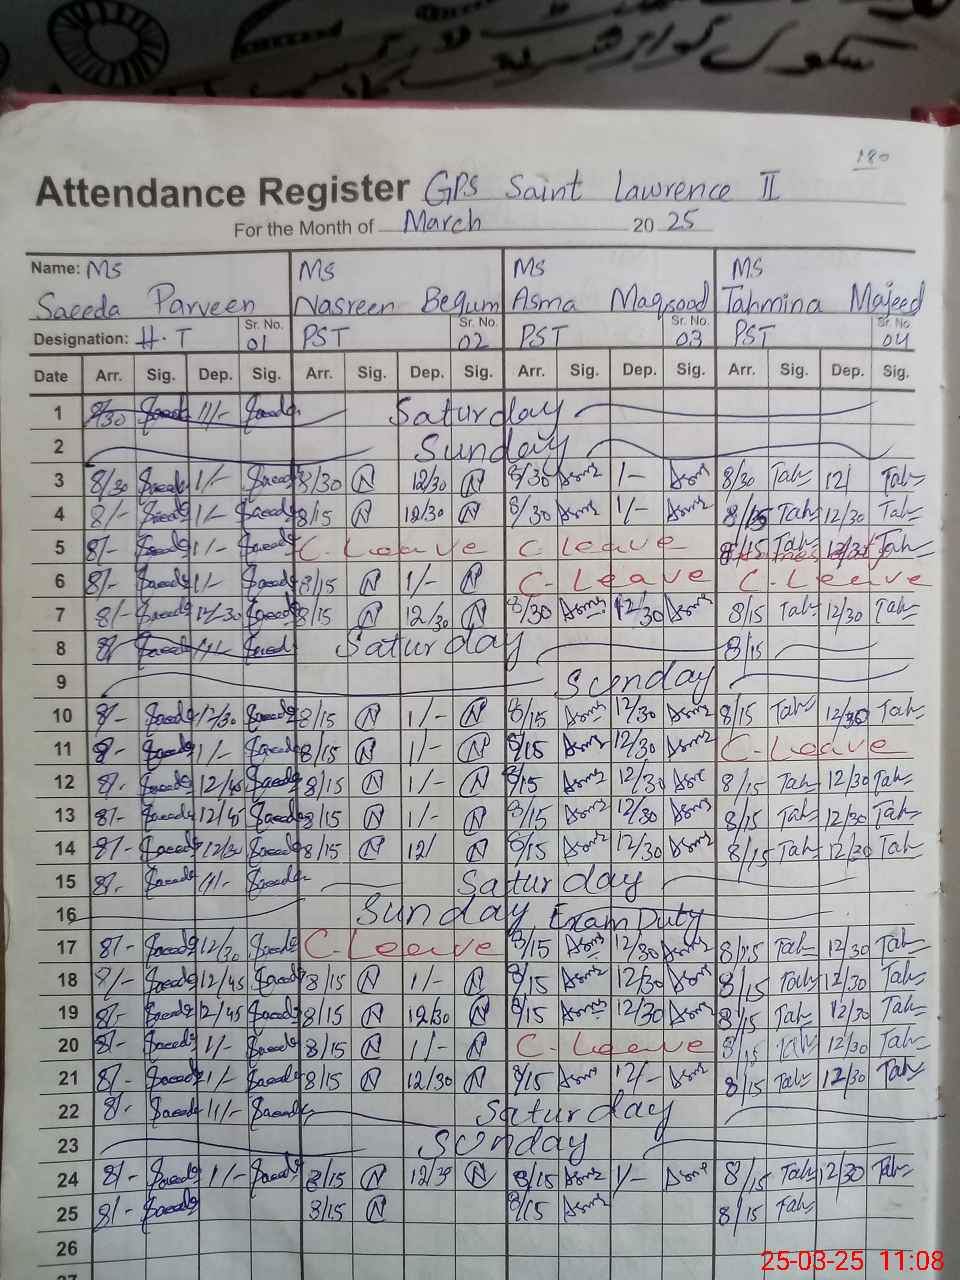 سکول
180
Attendance Register GPS Saint Lawrence II
For the Month of March 2025
Name: Ms Ms Ms Ms
Saeeda Parveen Nasreen Begum Asma Maqsood Tahmina Majeed
Designation: H.T Sr. No. 01 PST Sr. No. 02 PST Sr. No. 03 PST Sr. No. 04
Date Arr. Sig. Dep. Sig. Arr. Sig. Dep. Sig. Arr. Sig. Dep. Sig. Arr. Sig. Dep. Sig.
1 8/30 Saeeda 11/- Saeeda Saturday
2 Sunday
3 8/30 Saeeda 1/- Saeeda 8/30 N 12/30 N 8/30 Asma 1/- Asma 8/30 Tah 12/ Tah
4 8/- Saeeda 1/- Saeeda 8/15 N 12/30 N 8/30 Asma 1/- Asma 8/15 Tah 12/30 Tah
5 8/- Saeeda 1/- Saeeda C. Leave C. Leave 8/15 Tah 12/30 Tah
6 8/- Saeeda 1/- Saeeda 8/15 N 1/- N C. Leave C. Leave
7 8/- Saeeda 12/30 Saeeda 8/15 N 12/30 N 8/30 Asma 12/30 Asma 8/15 Tah 12/30 Tah
8 8/- Saeeda 11/- Saeed Saturday 8/15
9 Sunday
10 8/- Saeeda 12/30 Saeeda 8/15 N 1/- N 8/15 Asma 12/30 Asma 8/15 Tah 12/30 Tah
11 8/- Saeeda 1/- Saeeda 8/15 N 1/- N 8/15 Asma 12/30 Asma C-Leave
12 8/- Saeeda 12/45 Saeeda 8/15 N 1/- N 8/15 Asma 12/30 Asma 8/15 Tah 12/30 Tah
13 8/- Saeeda 12/45 Saeeda 8/15 N 1/- N 8/15 Asma 12/30 Asma 8/15 Tah 12/30 Tah
14 8/- Saeeda 12/30 Saeeda 8/15 N 12/ N 8/15 Asma 12/30 Asma 8/15 Tah 12/30 Tah
15 8/- Saeeda 11/- Saeeda Saturday
16 Sunday Exam Duty
17 8/- Saeeda 12/30 Saeeda C-Leave 8/15 Asma 12/30 Asma 8/15 Tah 12/30 Tah
18 8/- Saeeda 12/45 Saeeda 8/15 N 1/- N 8/15 Asma 12/30 Asma 8/15 Tah 12/30 Tah
19 8/- Saeeda 12/45 Saeeda 8/15 N 12/30 N 8/15 Asma 12/30 Asma 8/15 Tah 12/30 Tah
20 8/- Saeeda 1/- Saeeda 8/15 N 1/- N C-Leave 8/15 Tah 12/30 Tah
21 8/- Saeeda 1/- Saeeda 8/15 N 12/30 N 8/15 Asma 12/- Asma 8/15 Tah 12/30 Tah
22 8/- Saeeda 11/- Saeeda Saturday
23 Sunday
24 8/- Saeeda 1/- Saeeda 8/15 N 12/30 N 8/15 Asma 1/- Asma 8/15 Tah 12/30 Tah
25 8/- Saeeda 8/15 N 8/15 Asma 8/15 Tah
26
27
25-03-25 11:08